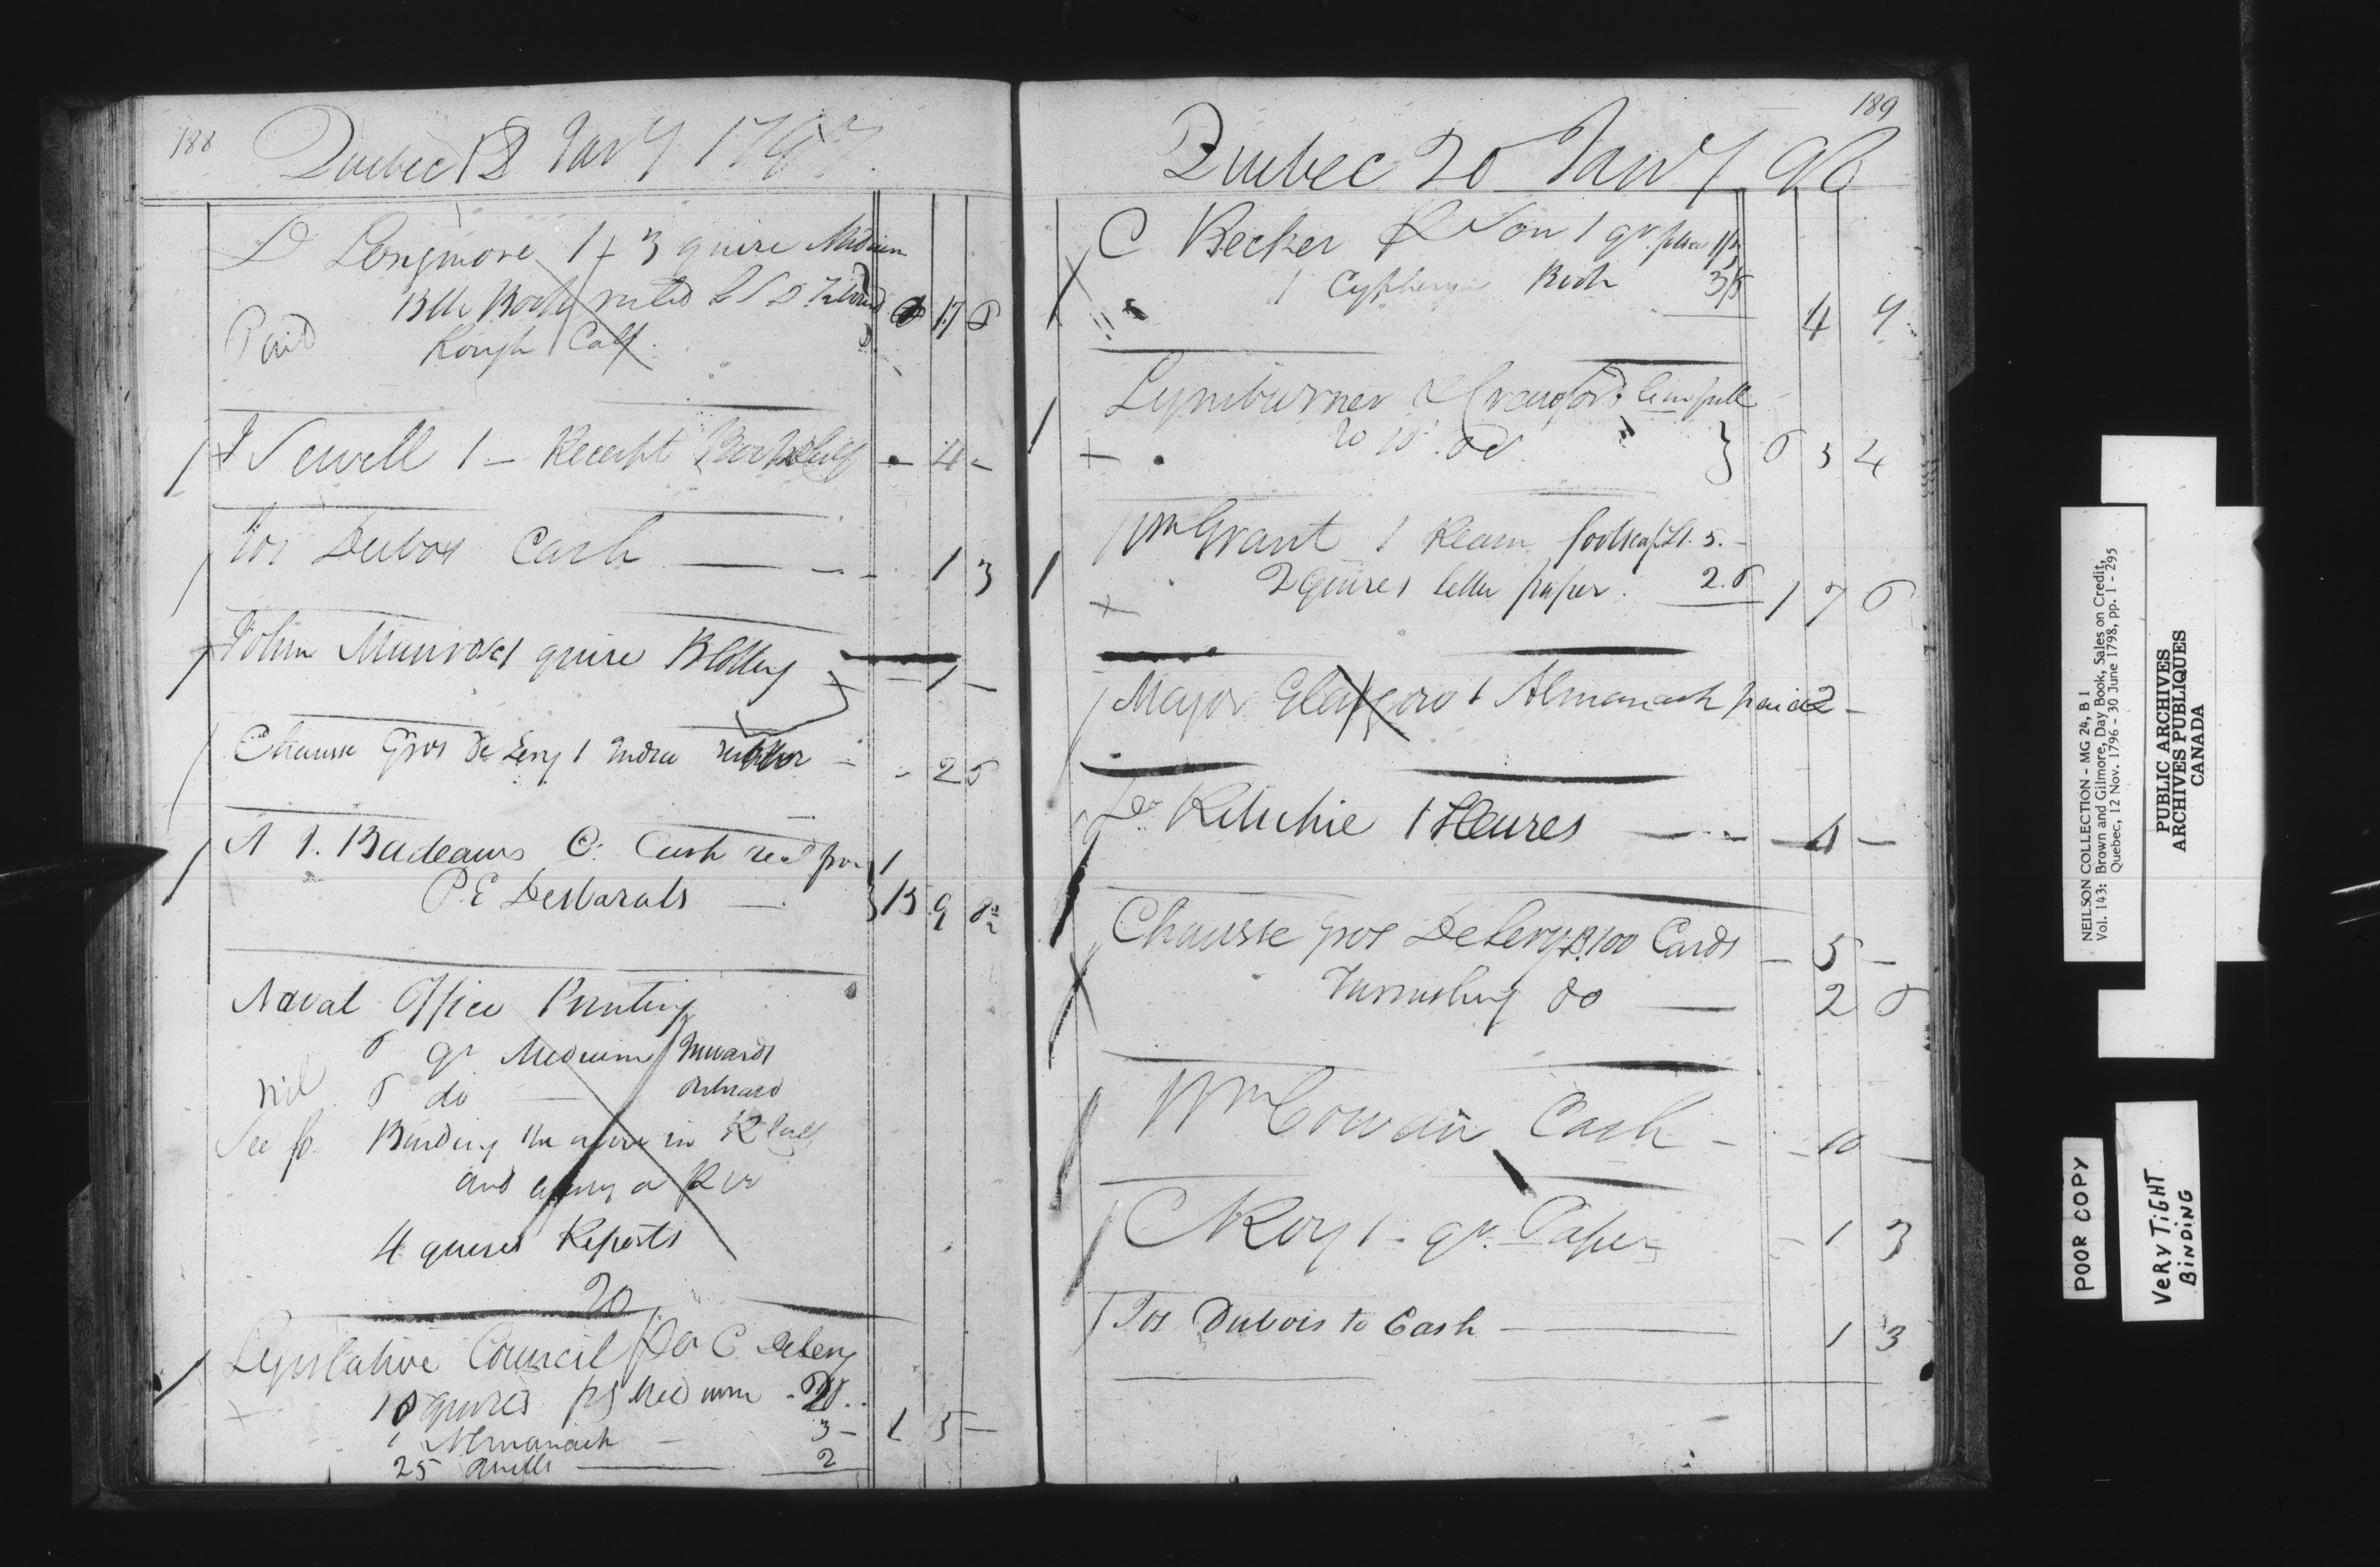 188
Quebec 18 Jany 1798
D Longmore 1 + 3 quire Medium
Blk Book ruled L S D
Paid Rough Calf 17 6
J Sewell 1 - Receipt Book - 4 -
Jos Dubois Cash 1 3
John Munro 1 quire Blotting 1 -
Chausse Gros De Lery 1 India rubber - - 2 6
A J. Badeaux Cash recd from
P. E Desbarats 13 9
Naval Office Printing
6 qr Medium Inwards
6 do Outward
See fo. Binding the above in R Calf
and
4 quires Reports
20
Legislative Council Per C Delery
10 quires Medium
1 Almanack 3 - 1 5 -
25 Quills 2
189
Quebec 20 Jany 98
C Becker & Son 1 qr
1 Cyphering Book
4 9
Lymburner & Crawford
6 3 4
Wm Grant 1 Ream foolscap £1. 5. -
2 quires letter paper. 2.6 1 7 6
Major Glasgow 1 Almanack paid 2 -
Dr Ritchie 1 Heures 4 -
Chausse gros Delery 100 Cards - 5 -
Furnishing do 2 6
Wm Cowan Cash - 10 -
C Roy 1 - qr. Paper 1 3
Jos Dubois to Cash 1 3
NEILSON COLLECTION - MG 24, B 1
Vol. 143: Brown and Gilmore, Day Book, Sales on Credit,
Quebec, 12 Nov. 1796 - 30 June 1798, pp. 1 - 295
PUBLIC ARCHIVES
ARCHIVES PUBLIQUES
CANADA
POOR COPY
VERY TIGHT
BINDING